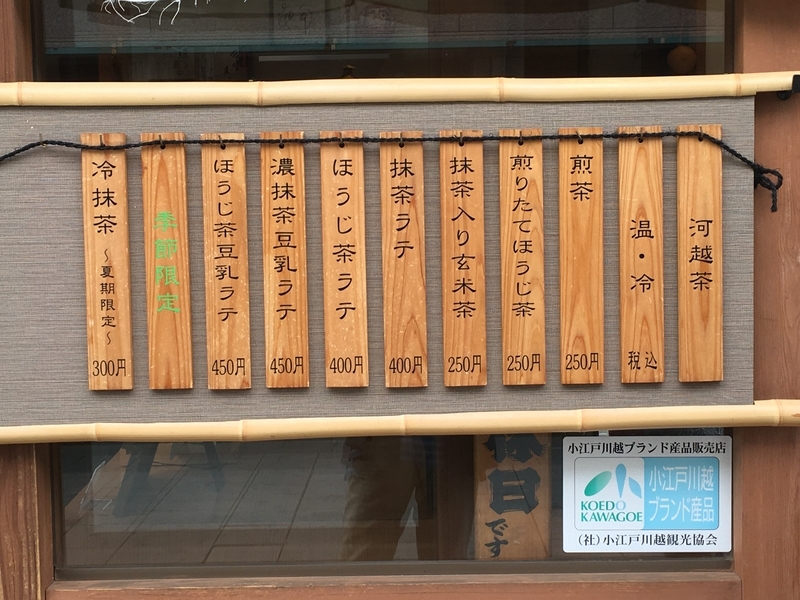 河越茶
温・冷
税込
煎茶
250円
煎りたてほうじ茶
250円
抹茶入り玄米茶
250円
抹茶ラテ
400円
ほうじ茶ラテ
400円
濃抹茶豆乳ラテ
450円
ほうじ茶豆乳ラテ
450円
季節限定
冷抹茶
～夏期限定～
300円
休日です
小江戸川越ブランド産品販売店
KOEDO
KAWAGOE
小江戸川越
ブランド産品
（社）小江戸川越観光協会